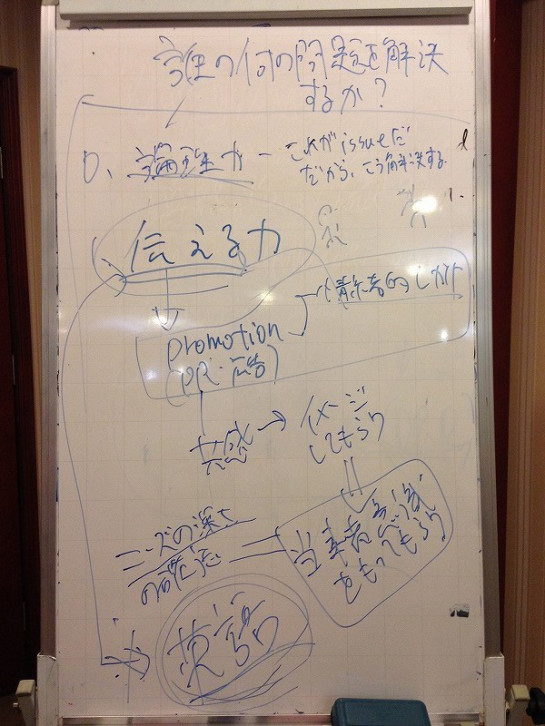 今僕の何の問題を解決
するか？
0、論理力 — これがissueだ
だから、こう解決する。
伝える力
情緒的
promotion
(PR・広告)
共感 → イメージ
してもらう
当事者意識
をもってもらう
ニーズの深さ
の確認
英語